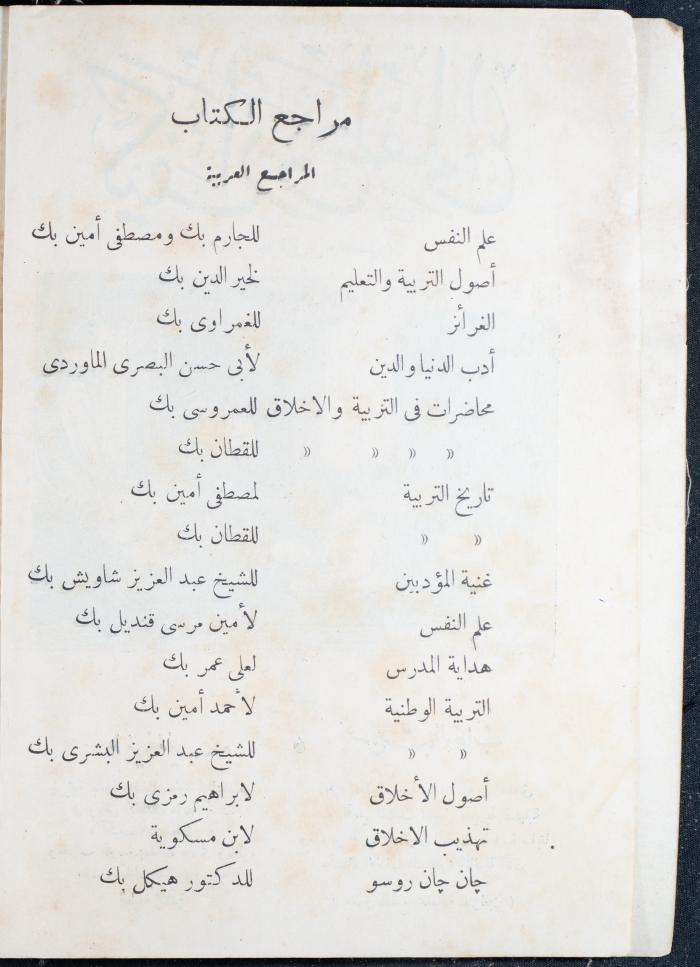 مراجع الكتاب
المراجع العربية
علم النفس للجارم بك ومصطفى أمين بك
أصول التربية والتعليم لخير الدين بك
الغرائز للغمراوى بك
أدب الدنيا والدين لأبى حسن البصرى الماوردى
محاضرات فى التربية والاخلاق للعمروسى بك
» » » » للقطان بك
تاريخ التربية لمصطفى أمين بك
» » للقطان بك
غنية المؤدبين للشيخ عبد العزيز شاويش بك
علم النفس لأمين مرسى قنديل بك
هداية المدرس لعلى عمر بك
التربية الوطنية لأحمد أمين بك
» » للشيخ عبد العزيز البشرى بك
أصول الأخلاق لابراهيم رمزى بك
تهذيب الاخلاق لابن مسكوية
چان چان روسو للدكتور هيكل بك